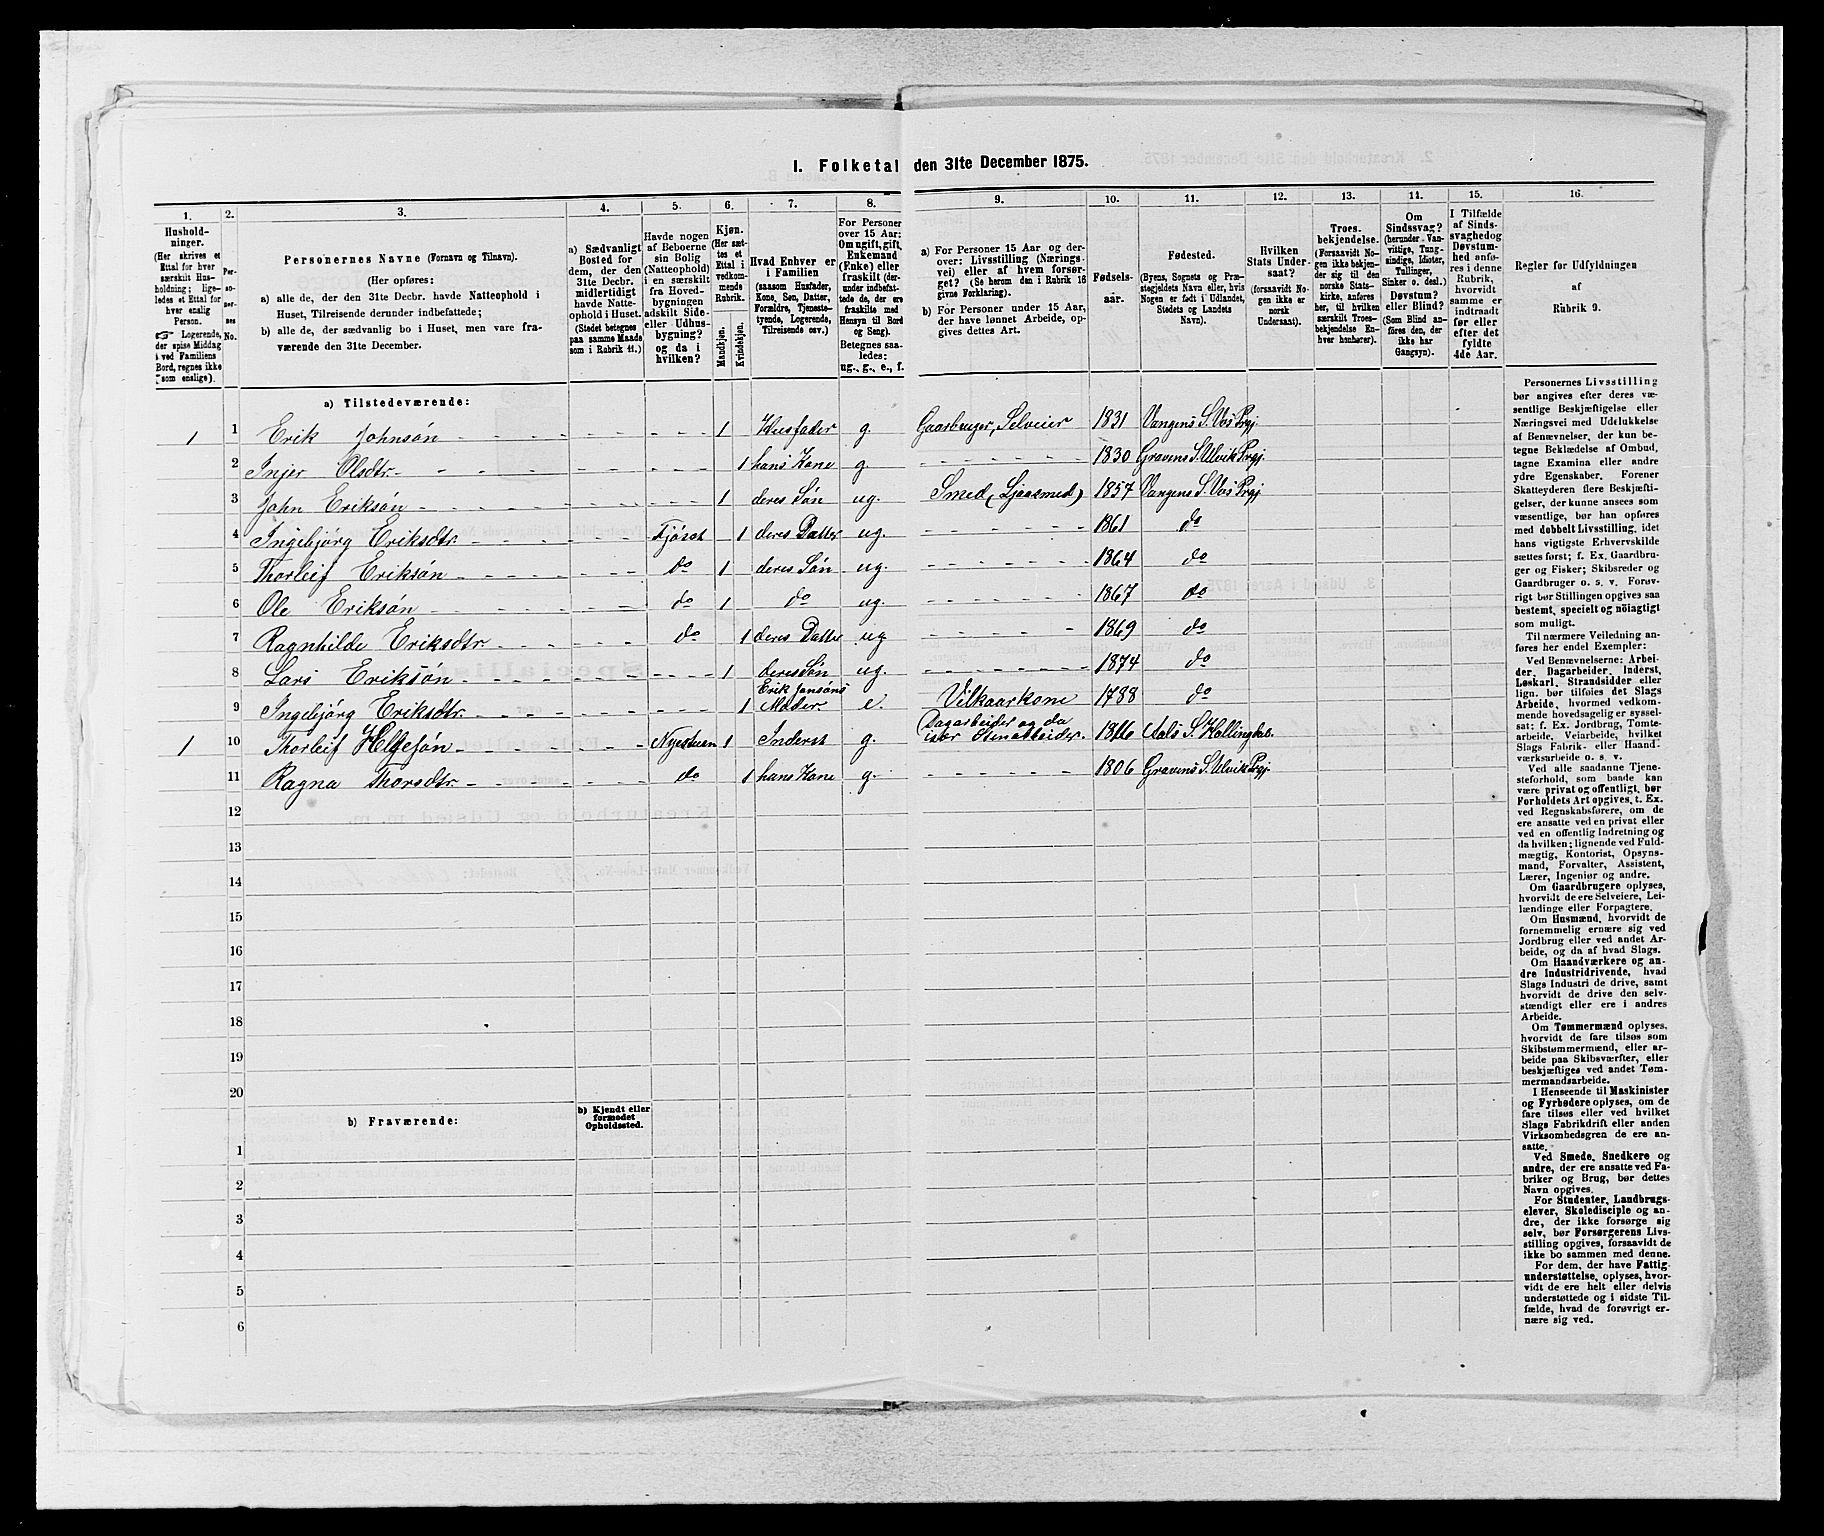 1. Folketal den 31te December 1875.
1. 2. 3. 4. 5. 6. 7. 8. 9. 10. 11. 12. 13. 14. 15. 16.
Hushold-
ninger.
(Her skrives et
Ettal for hver
særskilt Hus-
holdning; lige-
ledes et Ettal for
hver enslig
Person.
☞ Logerende,
der spise Middag
i ved Familiens
Bord, regnes ikke
som enslige).
Per-
so-
ner-
nes
No.
Personernes Navne (Fornavn og Tilnavn).
(Her opføres:
a) alle de, der den 31te Decbr. havde Natteophold i
Huset, Tilreisende derunder indbefattede;
b) alle de, der sædvanlig bo i Huset, men vare fra-
værende den 31te December.
a) Sædvanligt
Bosted for
dem, der den
31te Decbr.
midlertidigt
havde Natte-
ophold i Huset.
(Stedet betegnes
paa samme Maade
som i Rubrik 11.)
Havde nogen
af Beboerne
sin Bolig
(Natteophold)
i en særskilt
fra Hoved-
bygningen
adskilt Side-
eller Udhus-
bygning?
og da i
hvilken?
Kjøn.
(Her sæt-
tes et
Ettal i
vedkom-
mende
Rubrik.
Mandkjøn.
Kvindekjøn.
Hvad Enhver er
i Familien
(saasom Husfader,
Kone, Søn, Datter,
Forældre, Tjeneste-
tyende, Logerende,
Tilreisende osv.)
For Personer
over 15 Aar:
Om ugift, gift,
Enkemand
(Enke) eller
fraskilt (der-
under indbefat-
tede de, der ere
fraskilte med
Hensyn til Bord
og Seng).
Betegnes saa-
ledes:
ug., g., e., f.
a) For Personer 15 Aar og der-
over: Livsstilling (Nærings-
vei) eller af hvem forsør-
get? (Se herom den i Rubrik 16
givne Forklaring).
b) For Personer under 15 Aar,
der have lønnet Arbeide, op-
gives dettes Art.
Fødsels-
aar.
Fødested.
(Byens, Sognets og Præ-
stegjeldets Navn eller, hvis
Nogen er født i Udlandet,
Stedets og Landets
Navn).
Hvilken
Stats Under-
saat?
(forsaavidt No-
gen ikke er
norsk
Undersaat).
Troes-
bekjendelse.
(Forsaavidt No-
gen ikke bekjen-
der sig til den
norske Stats-
kirke, anføres
her, til hvilken
særskilt Troes-
bekjendelse En-
hver henhører).
Om
Sindssvag?
(herunder Van-
vittige, Tung-
sindige, Idioter,
Tullinger,
Sinker o. desl.)
Døvstum?
eller Blind?
(Som Blind an-
føres den, der
ikke har
Gangsyn).
I Tilfælde
af Sinds-
svaghed og
Døvstum-
hed anfø-
res i denne
Rubrik,
hvorvidt
samme er
indtraadt
før eller
efter det
fyldte
4de Aar.
Regler for Udfyldningen
af
Rubrik 9.
a) Tilstedeværende:
1 1 Erik Johnsøn 1 Husfader g. Gaarbruger, Selveier 1831 Vangens S. Vos Prgj.
2 Injer Olsdtr. 1 hans Kone g 1830 Gravens S. Ulvik Prgj.
3 John Eriksøn 1 deres Søn ug. Smed (Ljaasmed) 1857 Vangens S. Vos Prgj
4 Ingebjørg Eriksdtr. Fjøset 1 deres Datter ug. 1861 do
5 Thorleif Eriksøn do 1 deres Søn ug. 1864 do
6 Ole Eriksøn do 1 do ug. 1867 do
7 Ragnhilde Eriksdtr. do 1 deres Datter ug 1869 do
8 Lars Eriksøn 1 deres Søn ug. 1874 do
9 Ingebjørg Eriksdtr. 1 Erik Jonsøns Moder. e. Vilkaarkone 1788 do
1 10 Thorleif Helgesøn Nyestuen 1 Inderst g. Dagarbeider og da især Stenarbeider. 1816 Aals S. Hallingdal.
11 Ragna Thorsdtr. do 1 hans Kone g. 1806 Gravens S. Ulvik Prgj.
12
13
14
15
16
17
18
19
20
b) Fraværende:
b) Kjendt eller
formodet
Opholdssted.
1
2
3
4
5
6
Personernes Livsstilling
bør angives efter deres væ-
sentlige Beskjæftigelse eller
Næringsvei med Udelukkelse
af Benævnelser, der kun be-
tegne Beklædelse af Ombud,
tagne Examina eller andre
ydre Egenskaber. Forener
Skatteyderen flere Beskjæfti-
gelser, der kunne ansees som
væsentlige, bør han opføres
med dobbelt Livsstilling, idet
hans vigtigste Erhvervskilde
sættes først; f. Ex. Gaardbru-
ger og Fisker; Skibsreder og
Gaardbruger o. s. v. Forøv-
rigt bør Stillingen opgives saa
bestemt, specielt og nöiagtigt
som muligt.
Til nærmere Veiledning an-
føres her endel Exempler:
Ved Benævnelserne: Arbei-
der, Dagarbeider, Inderst,
Løskarl, Strandsidder eller
lign. bør tilføies det Slags
Arbeide, hvormed vedkom-
mende hovedsagelig er syssel-
sat; f. Ex. Jordbrug, Tomte-
arbeide, Veiarbeide, hvilket
Slags Fabrik- eller Haand-
værksarbeide o. s. v.
Ved alle saadanne Tjene-
steforhold, som baade kan
være privat og offentligt, bør
Forholdets Art opgives, t. Ex.
ved Regnskabsførere, om de
ere ansatte ved en privat eller
ved en offentlig Indretning og
da hvilken; lignende ved Fuld-
mægtig, Kontorist, Opsyns-
mand, Forvalter, Assistent,
Lærer, Ingeniør og andre.
Om Gaardbrugere oplyses,
hvorvidt de ere Selveiere, Lei-
lændinge eller Forpagtere.
Om Husmænd, hvorvidt de
fornemmelig ernære sig ved
Jordbrug eller ved andet Ar-
beide, og da af hvad Slags.
Om Haandværkere og an-
dre Industridrivende, hvad
Slags Industri de drive, samt
hvorvidt de drive den selv-
stændigt eller ere i andres
Arbeide.
Om Tømmermænd oplyses,
hvorvidt de fare tilsøs som
Skibstømmermænd, eller ar-
beide paa Skibsværfter, eller
beskjæftiges ved andet Tøm-
mermandsarbeide.
I Henseende til Maskinister
og Fyrbødere oplyses, om de
fare tilsøs eller ved hvilket
Slags Fabrikdrift eller anden
Virksomhedsgren de ere an-
satte.
Ved Smede, Snedkere og
andre, der ere ansatte ved Fa-
briker og Brug, bør dettes
Navn opgives.
For Studenter, Landbrugs-
elever, Skoledisciple og an-
dre, der ikke forsørge sig
selv, bør Forsørgerens Livs-
stilling opgives, forsaavidt de
ikke bo sammen med denne.
For dem, der have Fattig-
understøttelse, oplyses, hvor-
vidt de ere helt eller delvis
understøttede og i sidste Til-
fælde, hvad de forøvrigt er-
nære sig ved.